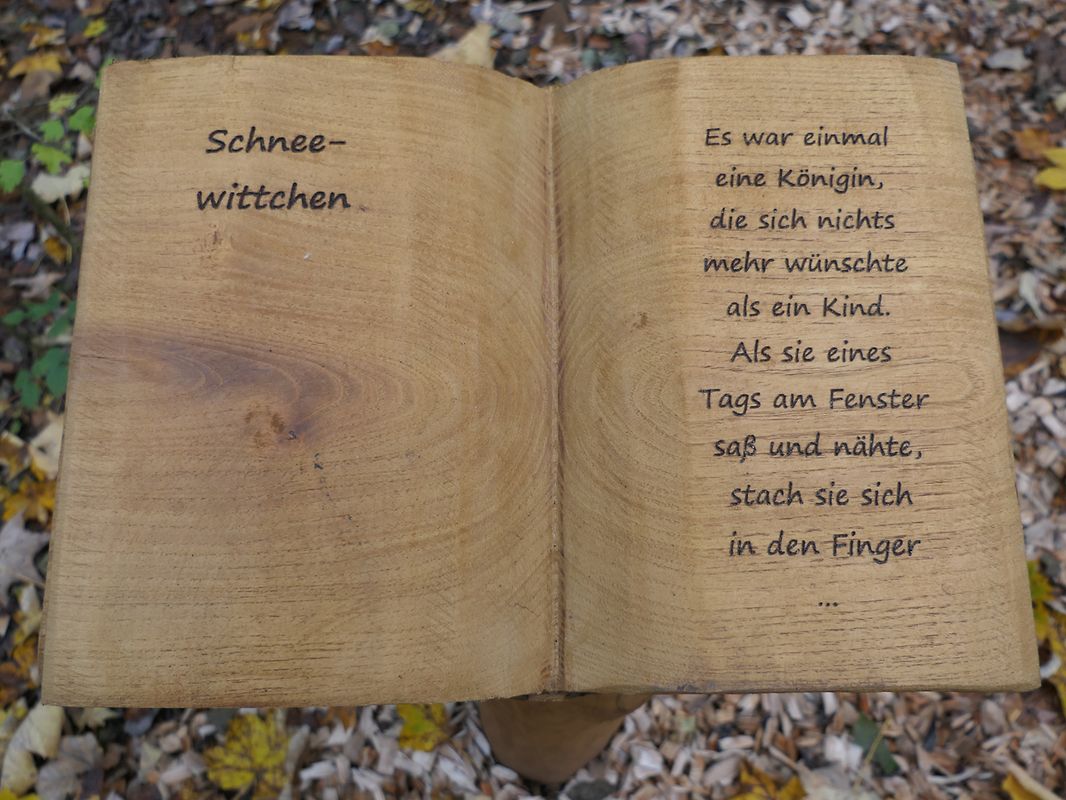 Schnee-
wittchen
Es war einmal
eine Königin,
die sich nichts
mehr wünschte
als ein Kind.
Als sie eines
Tags am Fenster
saß und nähte,
stach sie sich
in den Finger
...